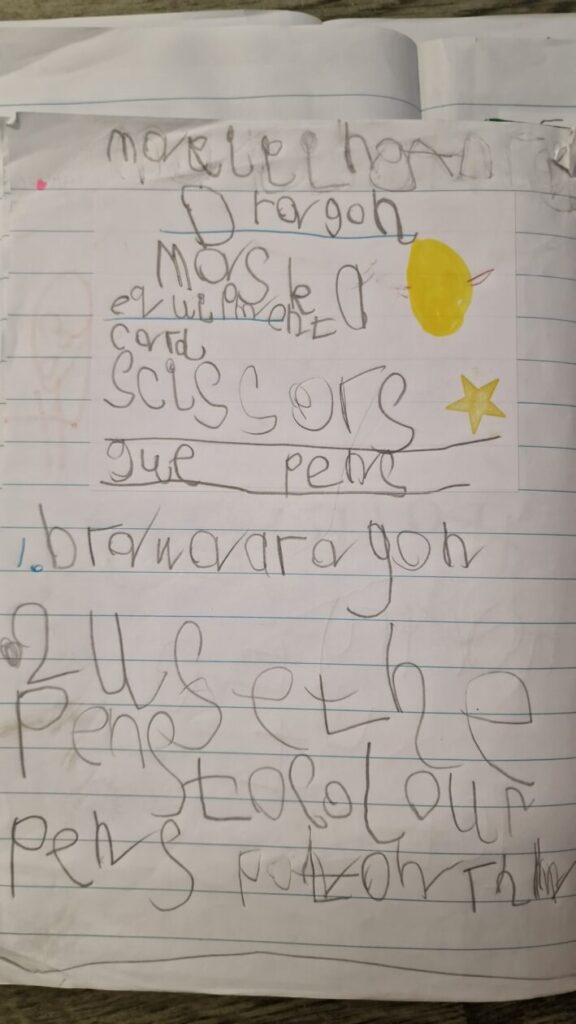 Dragon
mask
equipment
card
scissors
gue pens
1. brawadragon
2 Use the
pens
to colour
pens